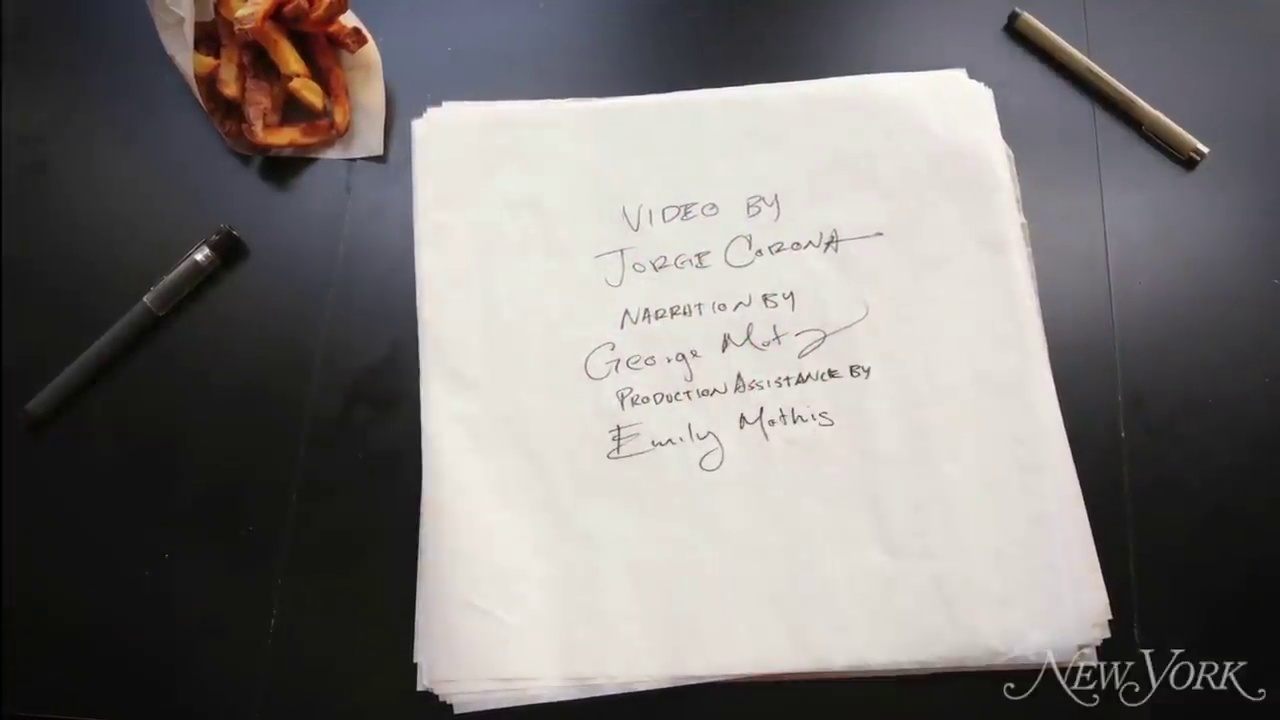 VIDEO BY
JORGE CORONA
NARRATION BY
George Motz
PRODUCTION ASSISTANCE BY
Emily Mathis
NEW YORK